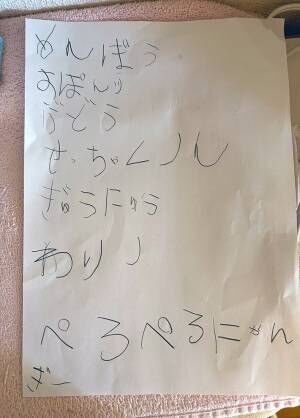 めんぼう
おぽんり
ぶどう
せっちゃくノん
ぎゅうにゅう
わりノ
ペろペろにゃん
ぎー